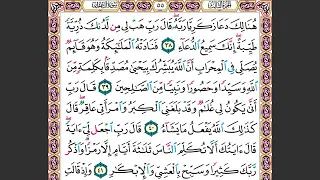 هُنَالِكَ دَعَا زَكَرِيَّا رَبَّهُۥ قَالَ رَبِّ هَبْ لِى مِن لَّدُنكَ ذُرِّيَّةً
طَيِّبَةً إِنَّكَ سَمِيعُ الدُّعَآءِ ٣٨ فَنَادَتْهُ الْمَلَٰٓئِكَةُ وَهُوَ قَآئِمٌ
يُصَلِّى فِى الْمِحْرَابِ أَنَّ اللَّهَ يُبَشِّرُكَ بِيَحْيَىٰ مُصَدِّقًۢا بِكَلِمَةٍ مِّنَ
اللَّهِ وَسَيِّدًا وَحَصُورًا وَنَبِيًّا مِّنَ الصَّٰلِحِينَ ٣٩ قَالَ رَبِّ
أَنَّىٰ يَكُونُ لِى غُلَٰمٌ وَقَدْ بَلَغَنِىَ الْكِبَرُ وَامْرَأَتِى عَاقِرٌ قَالَ
كَذَٰلِكَ اللَّهُ يَفْعَلُ مَا يَشَآءُ ٤٠ قَالَ رَبِّ اجْعَل لِّىٓ ءَايَةً
قَالَ ءَايَتُكَ أَلَّا تُكَلِّمَ النَّاسَ ثَلَٰثَةَ أَيَّامٍ إِلَّا رَمْزًا وَاذْكُر
رَّبَّكَ كَثِيرًا وَسَبِّحْ بِالْعَشِىِّ وَالْإِبْكَٰرِ ٤١ وَإِذْ قَالَتِ